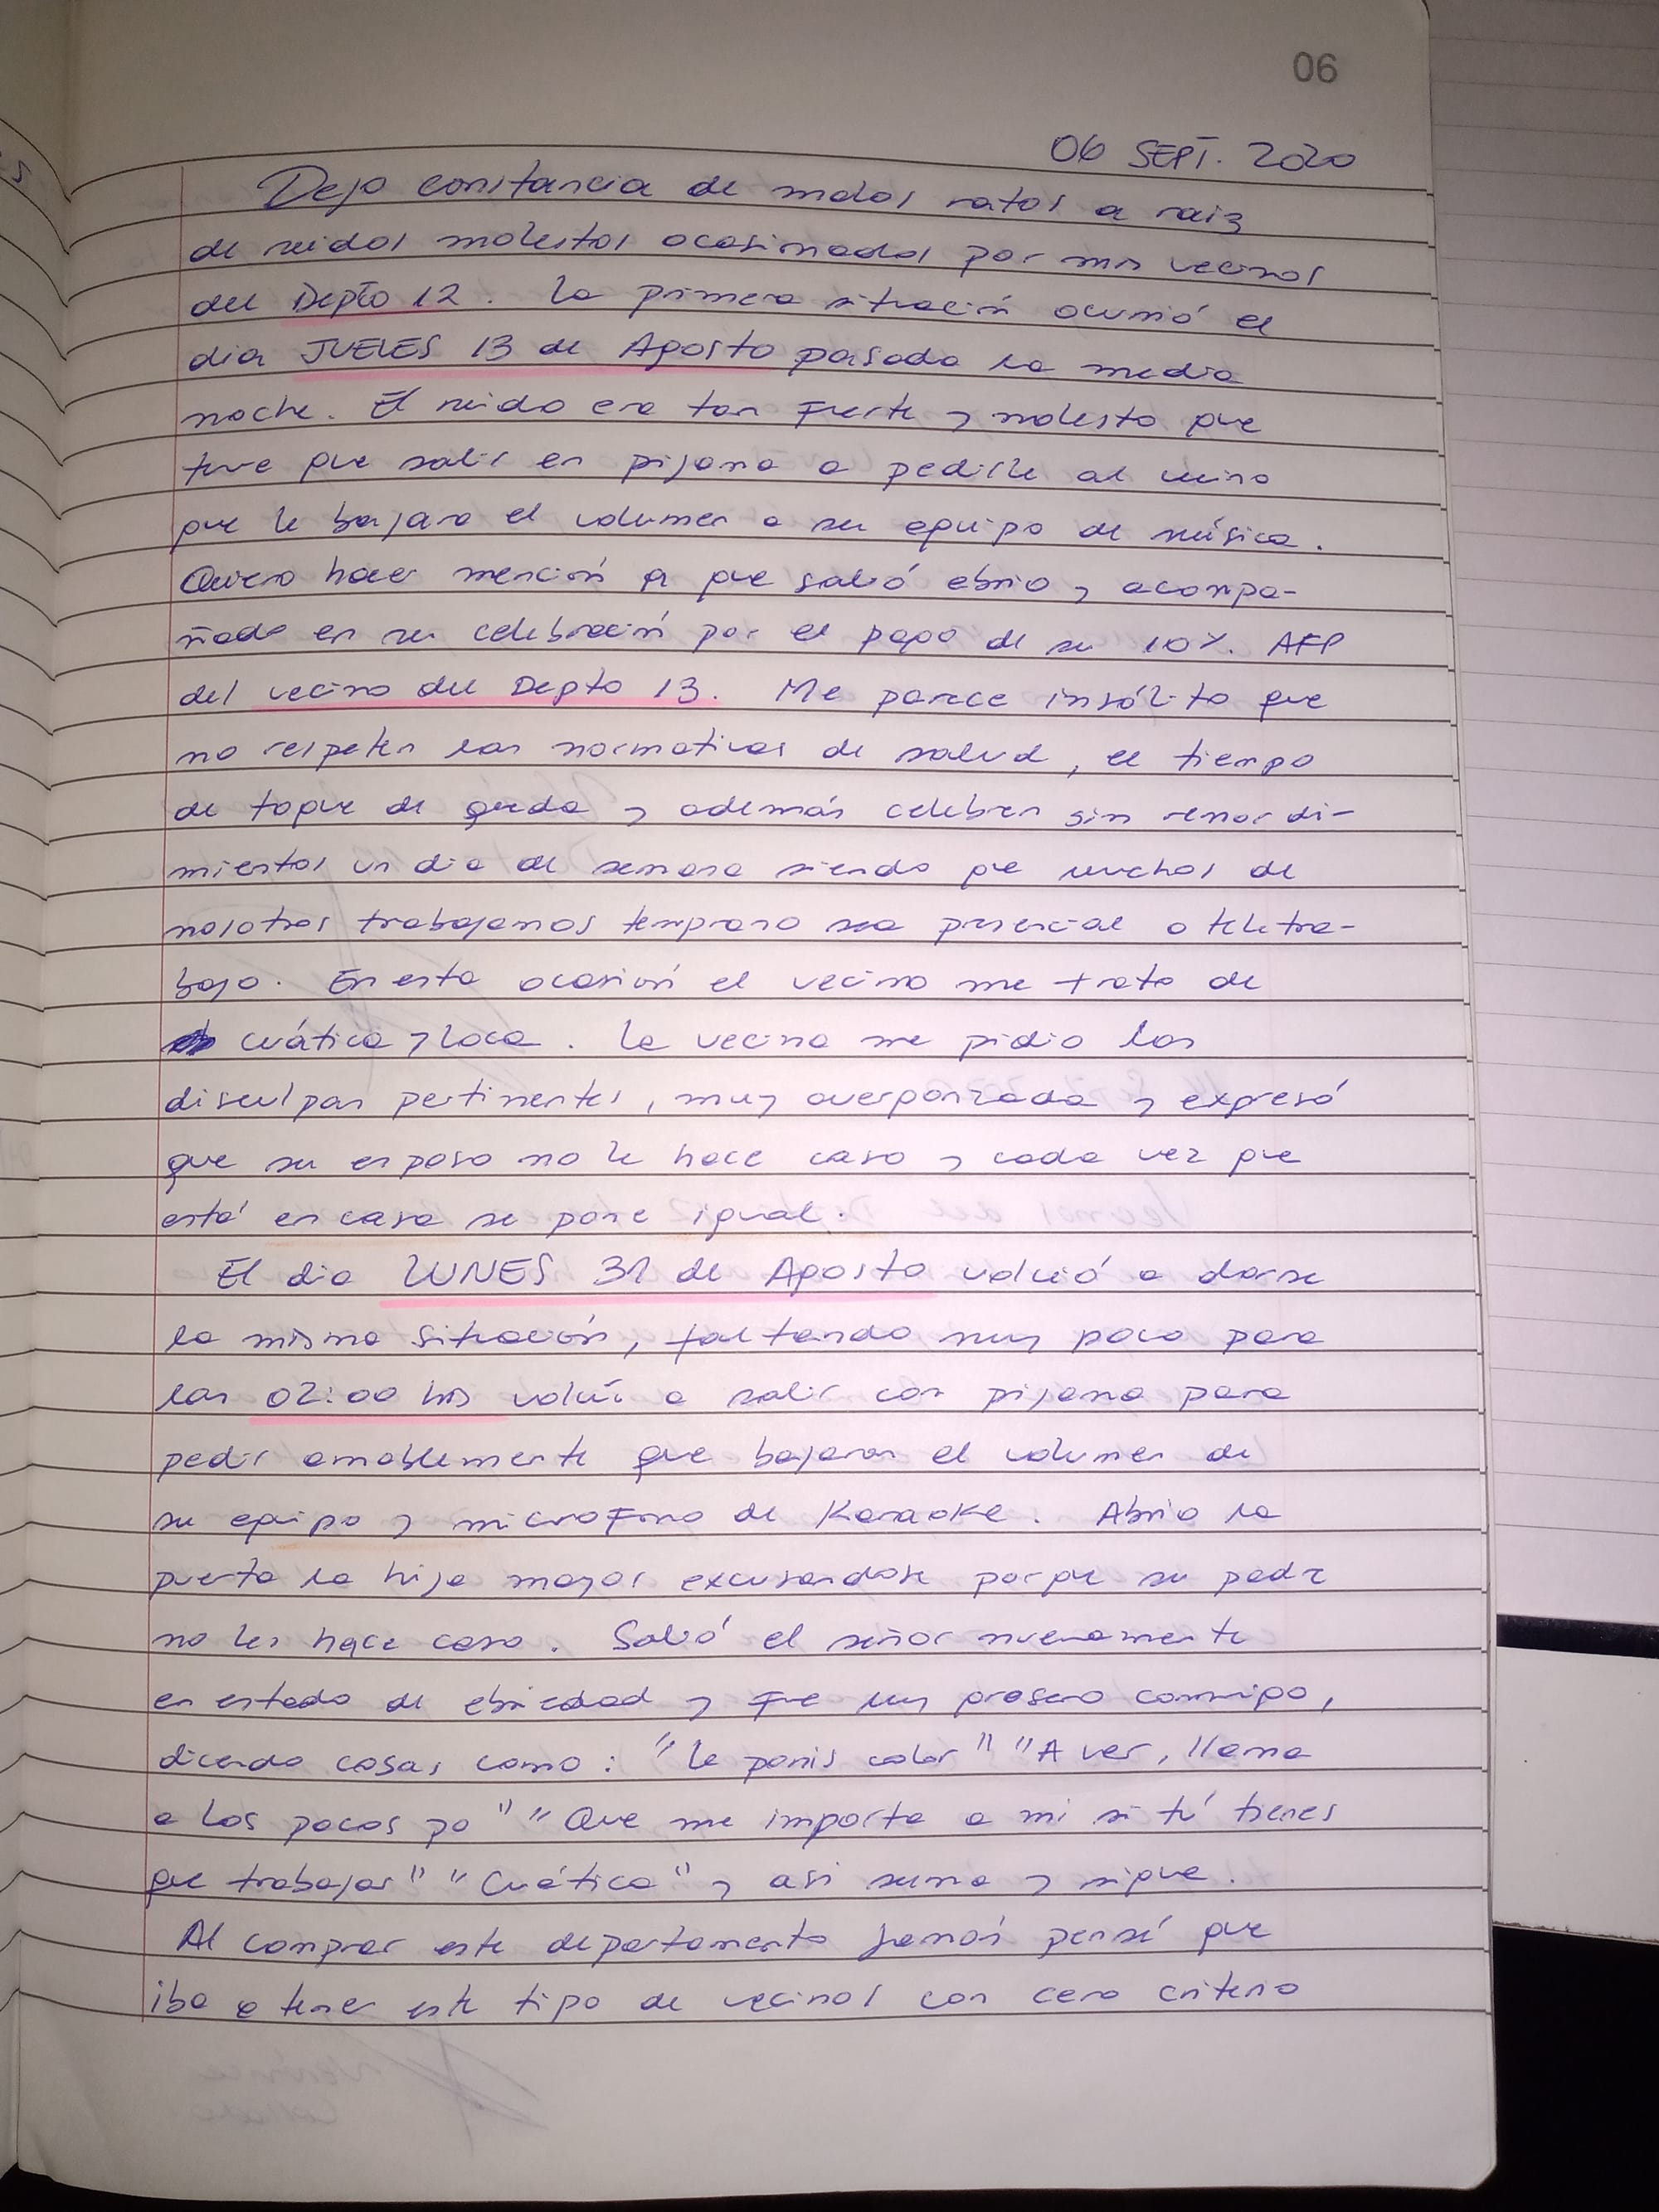 06
06 SEPT. 2020
Dejo constancia de malos ratos a raiz
de ruidos molestos ocasionados por mis vecinos
del Depto 12. La primera situación ocurrió el
dia JUEVES 13 de Agosto pasada la media
noche. El ruido era tan fuerte y molesto que
tuve que salir en pijama a pedirle al vecino
que le bajara el volumen a su equipo de música.
Quiero hacer mención a que salió ebrio y acompa-
ñado en su celebración por el pago de su 10%. AFP
del vecino del Depto 13. Me parece insólito que
no respeten las normativas de salud, el tiempo
de toque de queda y además celebren sin remordi-
mientos un dia de semana siendo que muchos de
nosotros trabajamos temprano sea presencial o teletra-
bajo. En esta ocasión el vecino me trato de
cuática y loca. La vecina me pidio las
disculpas pertinentes, muy avergonzada y expresó
que su esposo no le hace caso y cada vez que
está en casa se pone igual.
El dia LUNES 31 de Agosto volvió a darse
la misma situación, faltando muy poco para
las 02:00 hrs volví a salir con pijama para
pedir amablemente que bajaran el volumen de
su equipo y microfono de Karaoke. Abrio la
puerta la hija mayor excusandose porque su padre
no les hace caso. Salió el señor nuevamente
en estado de ebriedad y fue muy grosero conmigo,
diciendo cosas como: "Le ponis color" "A ver, llama
a los pacos po" "Que me importa a mi si tú tienes
que trabajar" "Cuática" y asi suma y sigue.
Al comprar este departamento jamás pensé que
iba a tener este tipo de vecinos con cero criterio